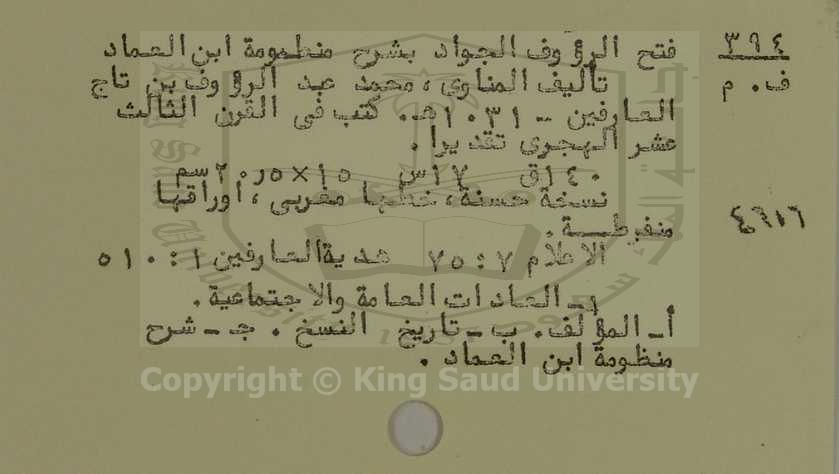 ٣٩٤
ف. م
فتح الرؤوف الجواد بشرح منظومة ابن العماد
تأليف المناوى ، محمد عبد الرؤوف بن تاج
العارفين - ١٠٣١هـ. كتب فى القرن الثالث
عشر الهجرى تقديرا .
١٤٠ق ١٧س ١٥×٢٠٫٥سم
نسخة حسنة ، خطها مغربى ، أوراقها
منفرطة .
٤٦١٦
الاعلام ٧ : ٧٥ هدية العارفين ١ : ٥١٠
١- العادات العامة والاجتماعية .
أ- المؤلف . ب - تاريخ النسخ . جـ - شرح
منظومة ابن العماد .
Copyright © King Saud University